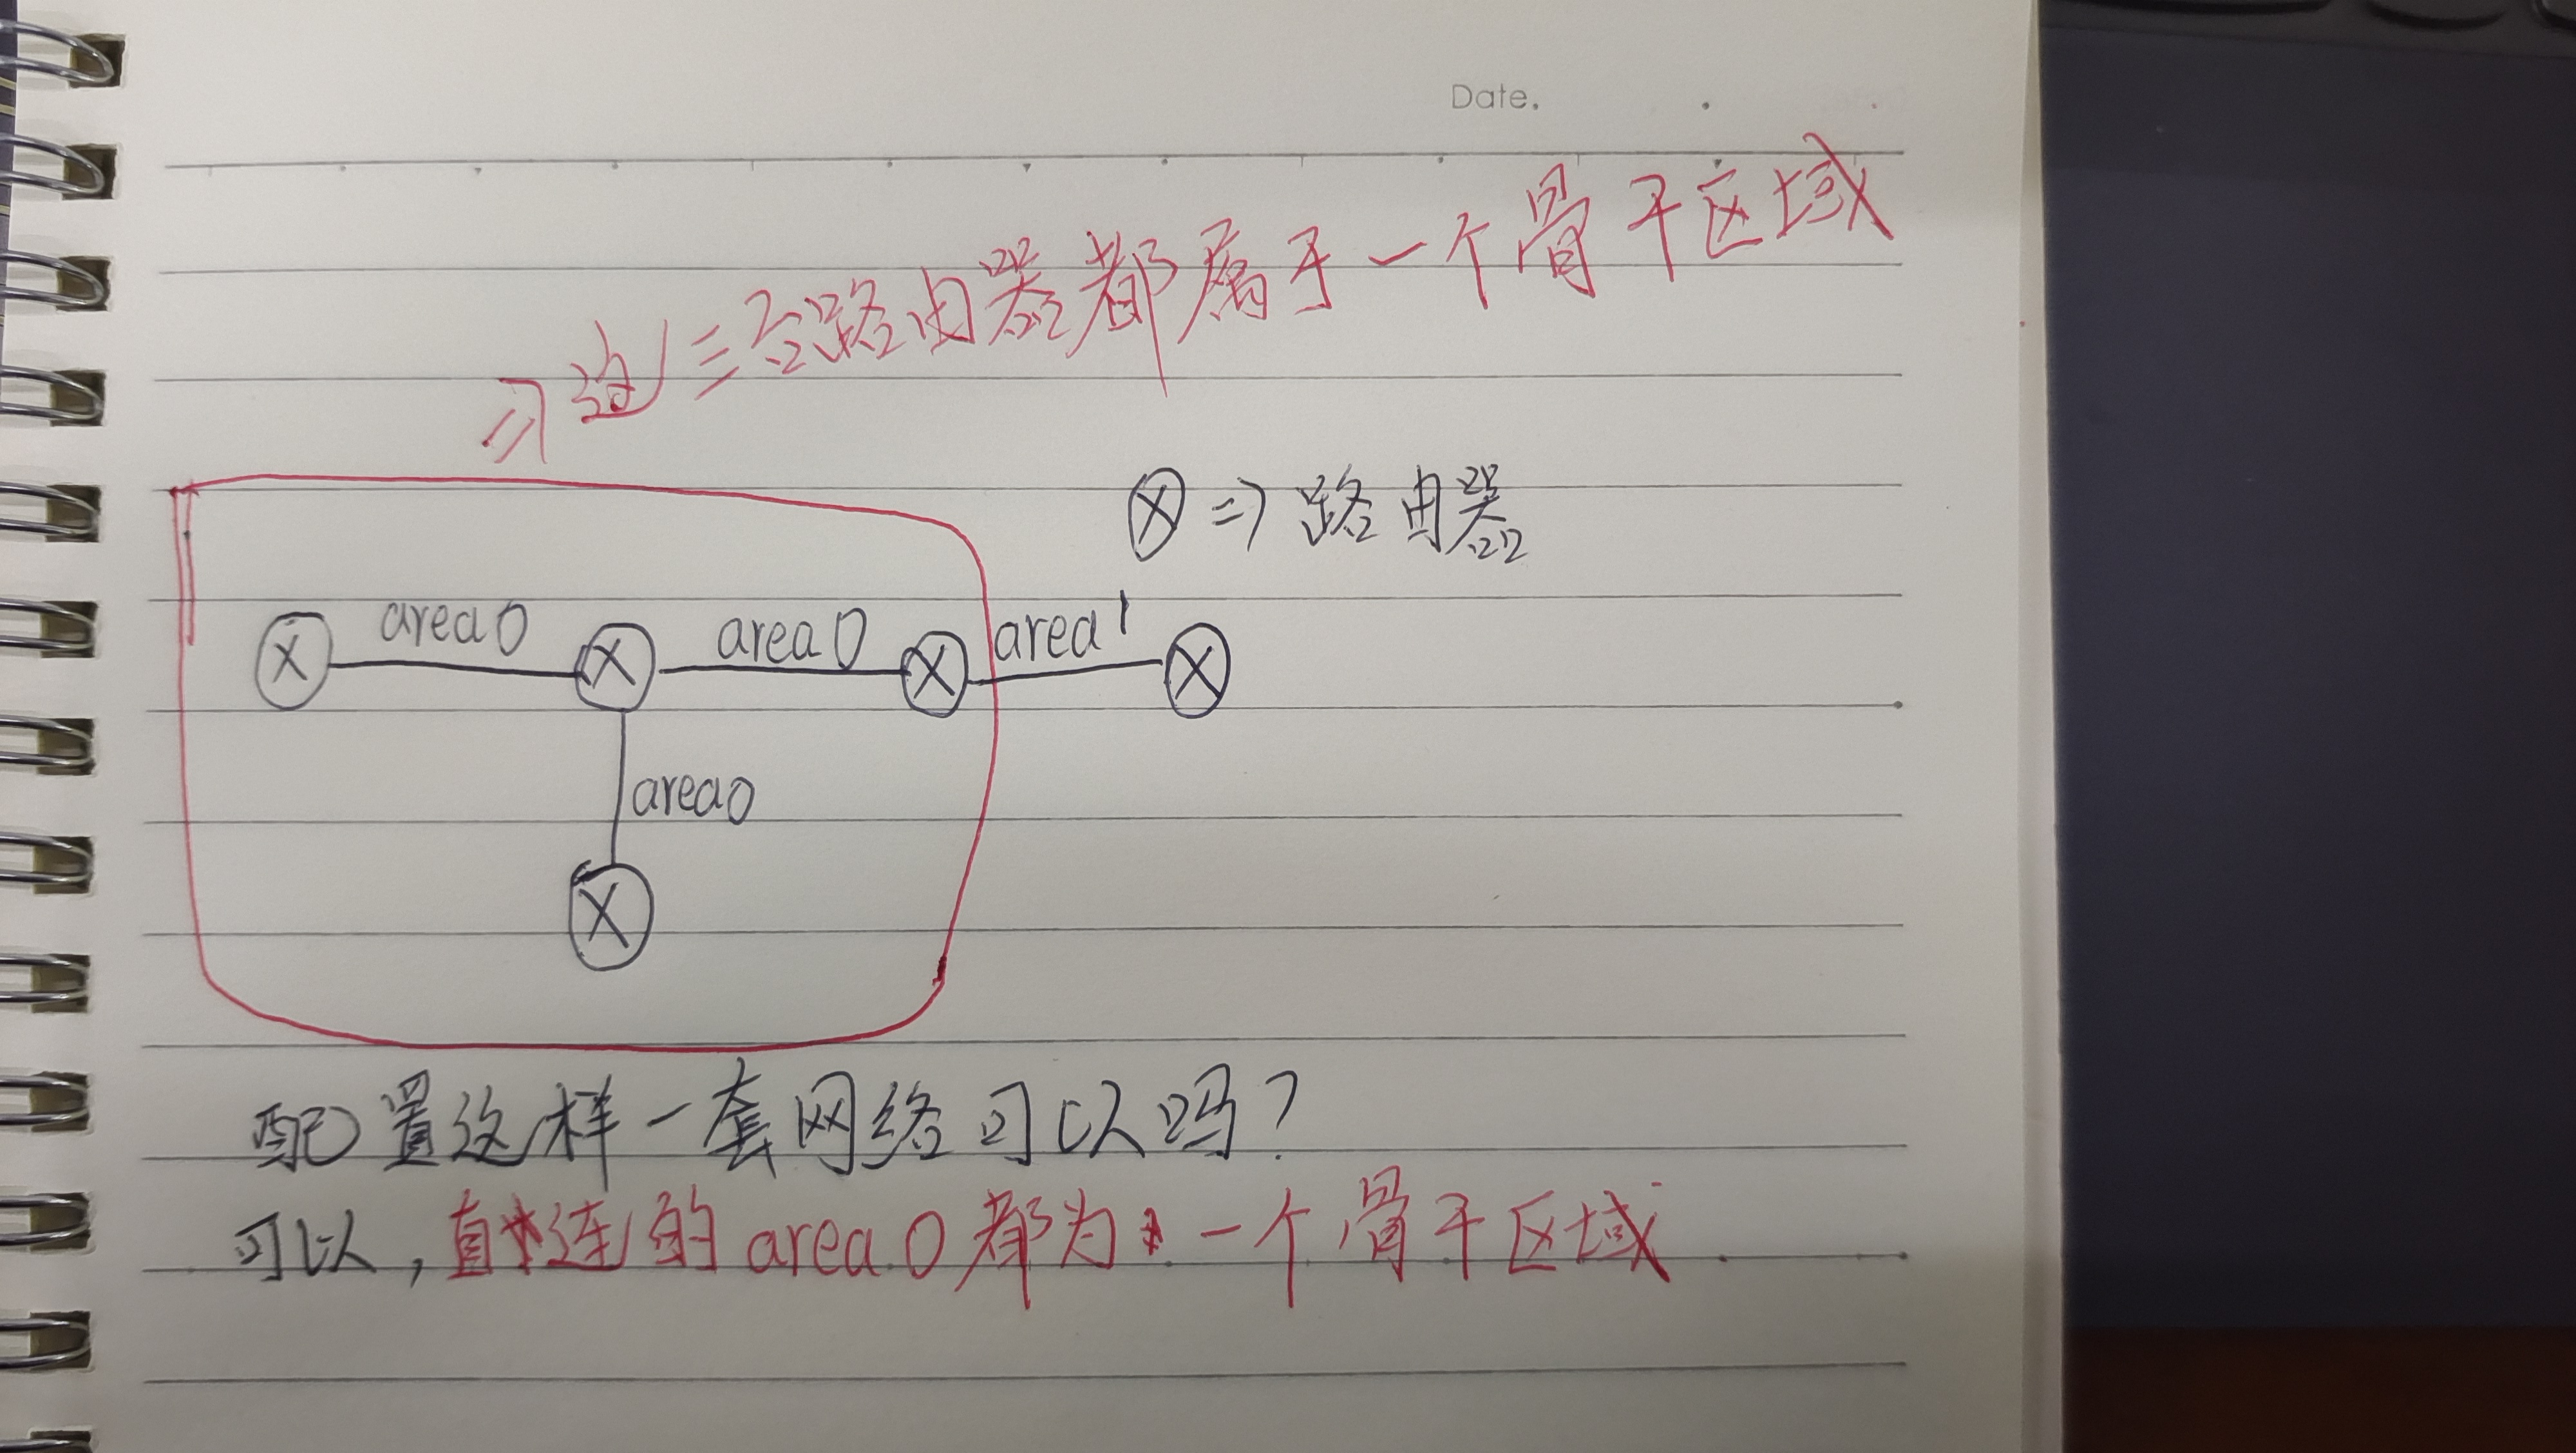 Date.
=> 这三台路由器都属于一个骨干区域
ⓧ => 路由器
area 0
area 0
area 1
area 0
配置这样一套网络可以吗?
可以,直连的area 0都为一个骨干区域.